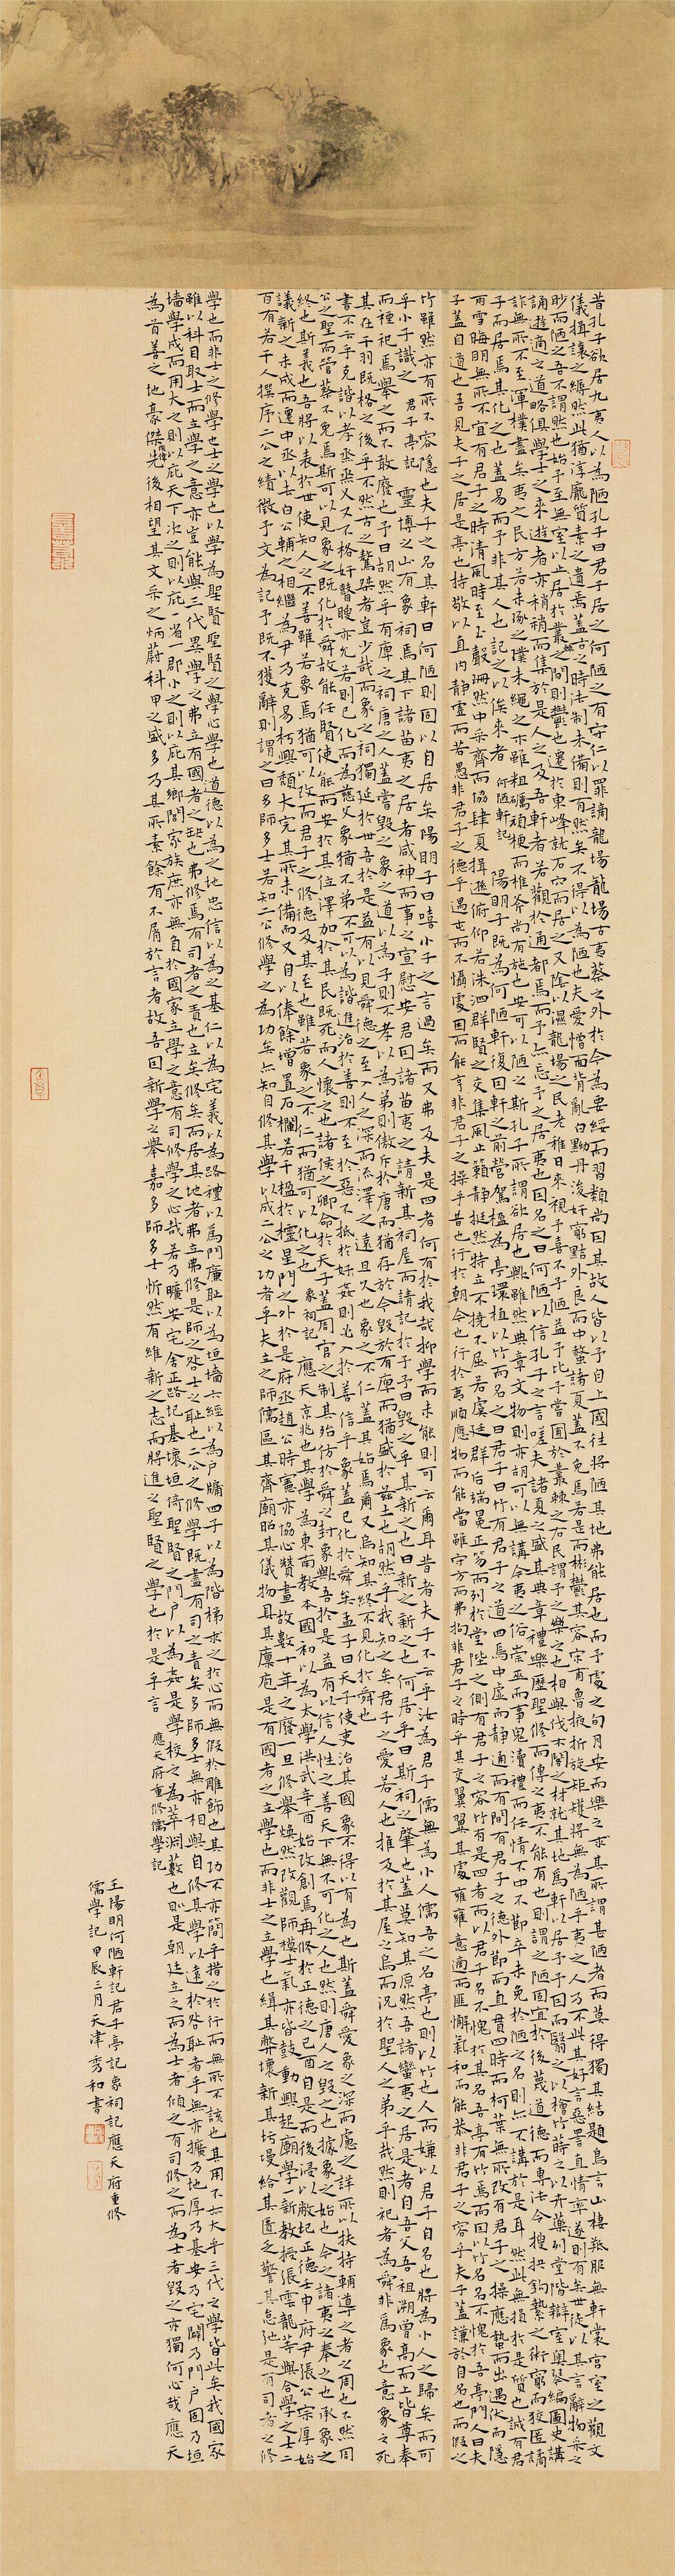 昔孔子欲居九夷人以為陋孔子曰君子居之何陋之有守仁以罪謫龍場龍場古夷蔡之外於今為要綏而習類尚因其故人皆以予自上國往將陋其地弗能居也而予處之旬月安而樂之求其所謂甚陋者而莫得獨其結題鳥言山棲羝服無軒裳宮室之觀文
儀揖讓之縟然此猶淳龐質素之遺焉蓋古之時法制未備則有然矣不得以為陋也夫愛憎面背亂白黝丹浚奸窮黠外良而中螫諸夏蓋不免焉若是而彬鬱其容宋甫魯掖折旋矩矱將無為陋乎夷之人乃不能此其好言惡詈直情率遂則有矣世徒以其言辭物采之
眇而陋之吾不謂然也始予至無室以止居於叢棘之間則鬱也遷於東峰就石穴而居之又陰以濕龍場之民老稚日來視予喜不予陋益予比予嘗圃於叢棘之右民謂予之樂之也相與伐木閣之材就其地為軒以居予予因而翳之以檜竹蒔之以卉藥列堂階辯室奧琴編圖史講
誦遊適之道略俱學士之來遊者亦稍稍而集於是人之及吾軒者若觀於通都焉而予亦忘予之居夷也因名之曰何陋以信孔子之言嗟夫諸夏之盛其典章禮樂歷聖修而傳之夷不能有也則謂之陋固宜於後蔑道德而專法令搜抉鉤縶之術窮而狡匿譎
詐無所不至渾樸盡矣夷之民方若未琢之璞未繩之木雖粗礪頑梗而椎斧尚有施也安可以陋之斯孔子所謂欲居也歟雖然典章文物則亦胡可以無講今夷之俗崇巫而事鬼瀆禮而任情不中不節卒未免於陋之名則亦不講於是耳然此無損於是質也誠有君
子而居焉其化之也蓋易而予非其人也記之以俟來者 何陋軒記 陽明子既為何陋軒復因軒之前營駕楹為亭環植以竹而名之曰君子曰竹有君子之道四焉中虛而靜通而有間有君子之德外節而直貫四時而柯葉無所改有君子之操應蟄而出遇伏而隱
雨雪晦明無所不宜有君子之時清風時至玉聲珊然中采齊而協肆夏揖遜俯仰若洙泗群賢之交集風止籟靜挺然特立不撓不屈若虞廷群后端冕正笏而列於堂陛之側有君子之容竹有是四者而以君子名不愧於其名吾亭有竹焉而因以竹名名不愧於吾亭門人曰夫
子蓋自道也吾見夫子之居是亭也持敬以直內靜虛而若愚非君子之德乎遇屯而不懾處困而能亨非君子之操乎昔也行於朝今也行於夷順應物而能當雖守方而弗拘非君子之時乎其交翼翼其處雍雍意適而匪懈氣和而能恭非君子之容乎夫子蓋謙於自名也而假之
竹雖然亦有所不容隱也夫子之名其軒曰何陋則固以自居矣陽明子曰嘻小子之言過矣而又弗及夫是四者何有於我哉抑學而未能則可云爾耳昔者夫子不云乎汝為君子儒無為小人儒吾之名亭也則以竹也人而嫌以君子自名也將為小人之歸矣而可
乎小子識之 君子亭記 靈博之山有象祠焉其下諸苗夷之居者咸神而事之宣慰安君因諸苗夷之請新其祠屋而請記於予予曰毀之乎其新之也曰新之新之也何居乎曰斯祠之肇也蓋莫知其原然吾諸蠻夷之居是者自吾父吾祖溯曾高而上皆尊奉
而禋祀焉舉之而不敢廢也予曰胡然乎有庳之祠唐之人蓋嘗毀之象之道以為子則不孝以為弟則傲斥於唐而猶存於今毀於有庳而猶盛於茲土也胡然乎我知之矣君子之愛若人也推及於其屋之烏而況於聖人之弟乎哉然則祀者為舜非為象也意象之死
其在干羽既格之後乎不然古之驁桀者豈少哉而象之祠獨延於世吾於是益有以見舜德之至入人之深而流澤之遠且久也象之不仁蓋其始焉爾又烏知其終不見化於舜也
書不云乎克諧以孝烝烝乂又不格奸瞽瞍亦允若則已化而為慈父象猶不弟不可以為諧進治於善則不至於惡不抵於奸則必入於善信乎象蓋已化於舜矣孟子曰天子使吏治其國象不得以有為也斯蓋舜愛象之深而慮之詳所以扶持輔導之者之周也不然周
公之聖而管蔡不免焉斯可以見象之既化於舜故能任賢使能而安於其位澤加於其民既死而人懷之也諸侯之卿命於天子蓋周官之制其殆仿於舜之封象歟吾於是益有以信人性之善天下無不可化之人也然則唐人之毀之也據象之始也今之諸夷之奉之也承象之
終也斯義也吾將以表於世使知人之不善雖若象焉猶可以改而君子之修德及其至也雖若象之不仁而猶可以化之也 象祠記 應天京兆也其學為東南教本國初以為太學洪武辛酉始改創焉再修於正德之己酉自是而後浸以敝圮正德壬申府尹張公宗厚始
議新之未成而遷中丞以去白公輔之相繼為尹乃克易朽興頹大完其所未備而又自以俸餘增置石欄若干楹於櫺星門之外於是府丞趙公時憲亦協心贊畫故數十年之廢一旦修舉煥然改觀師模士氣亦皆鼓動興起廟學一新教授張雲龍等與合學之士二
百有若干人撰序二公之績徵予文為記予既不獲辭則謂之曰多師多士若知二公修學之為功矣亦知自修其學以成二公之功者乎夫立之師儒區其齋廟昭其儀物具其廩庖是有國者之立學也而非士之立學也緝其弊壞新其圬墁給其匱乏警其怠弛是有司者之修
學也而非士之修學也士之學也以學為聖賢聖賢之學心學也道德以為之地忠信以為之基仁以為宅義以為路禮以為門廉恥以為垣墻六經以為戶牖四子以為階梯求之於心而無假於雕飾也其功不亦簡乎措之於行而無所不該也其用不亦大乎三代之學皆此矣我國家
雖以科目取士而立學之意亦豈能與三代異學之弗立有國者之缺也弗修焉有司者之責也立矣修矣而居其地者弗立弗修是師之咎士之恥也二公之修學既盡有司之責矣多師多士無亦相與自修其學以遠於咎恥者乎無亦擴乃地厚乃基安乃宅闢乃門戶固乃垣
墻學成而用大之則以庇天下次之則以庇一省一郡小之則以庇其鄉閭家族庶亦無負於國家立學之意有司修學之心哉若乃曠安宅舍正路圮基壞垣倚聖賢之門戶以為姦是學校之為萃淵藪也則是朝廷立之而為士者傾之有司修之而為士者毀之亦獨何心哉應天
為首善之地豪傑先後相望其文采之炳蔚科甲之盛多乃其所素餘有不屑於言者故吾因新學之舉嘉多師多士忻然有維新之志而將進之聖賢之學也於是乎言 應天府重修儒學記
王陽明何陋軒記君子亭記象祠記應天府重修
儒學記 甲辰三月天津秀和書